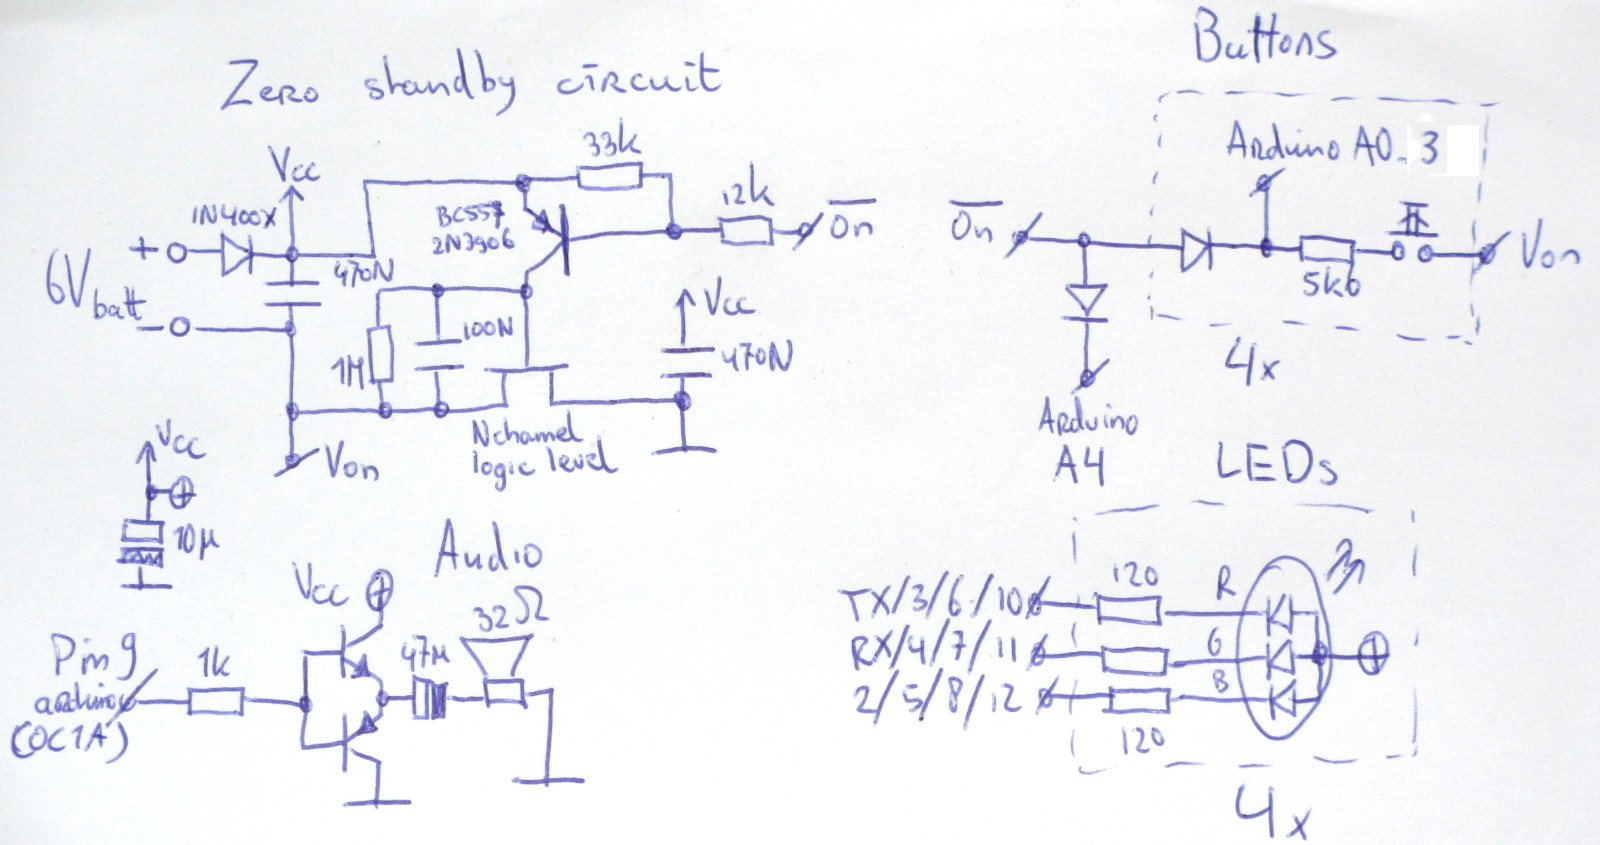 Buttons
Zero standby circuit
Vcc
33k
Arduino A0..3
1N400X
BC557
2N3906
12k
On
On
Von
+
6Vbatt
-
470N
5k6
Vcc
100N
1M
470N
4x
Arduino
A4
Nchannel
logic level
Von
Vcc
10µ
LEDs
Audio
Vcc
32Ω
120
R
TX/3/6/10
Pin 9
arduino
(OC1A)
1k
47µ
RX/4/7/11
G
2/5/8/12
B
120
4x